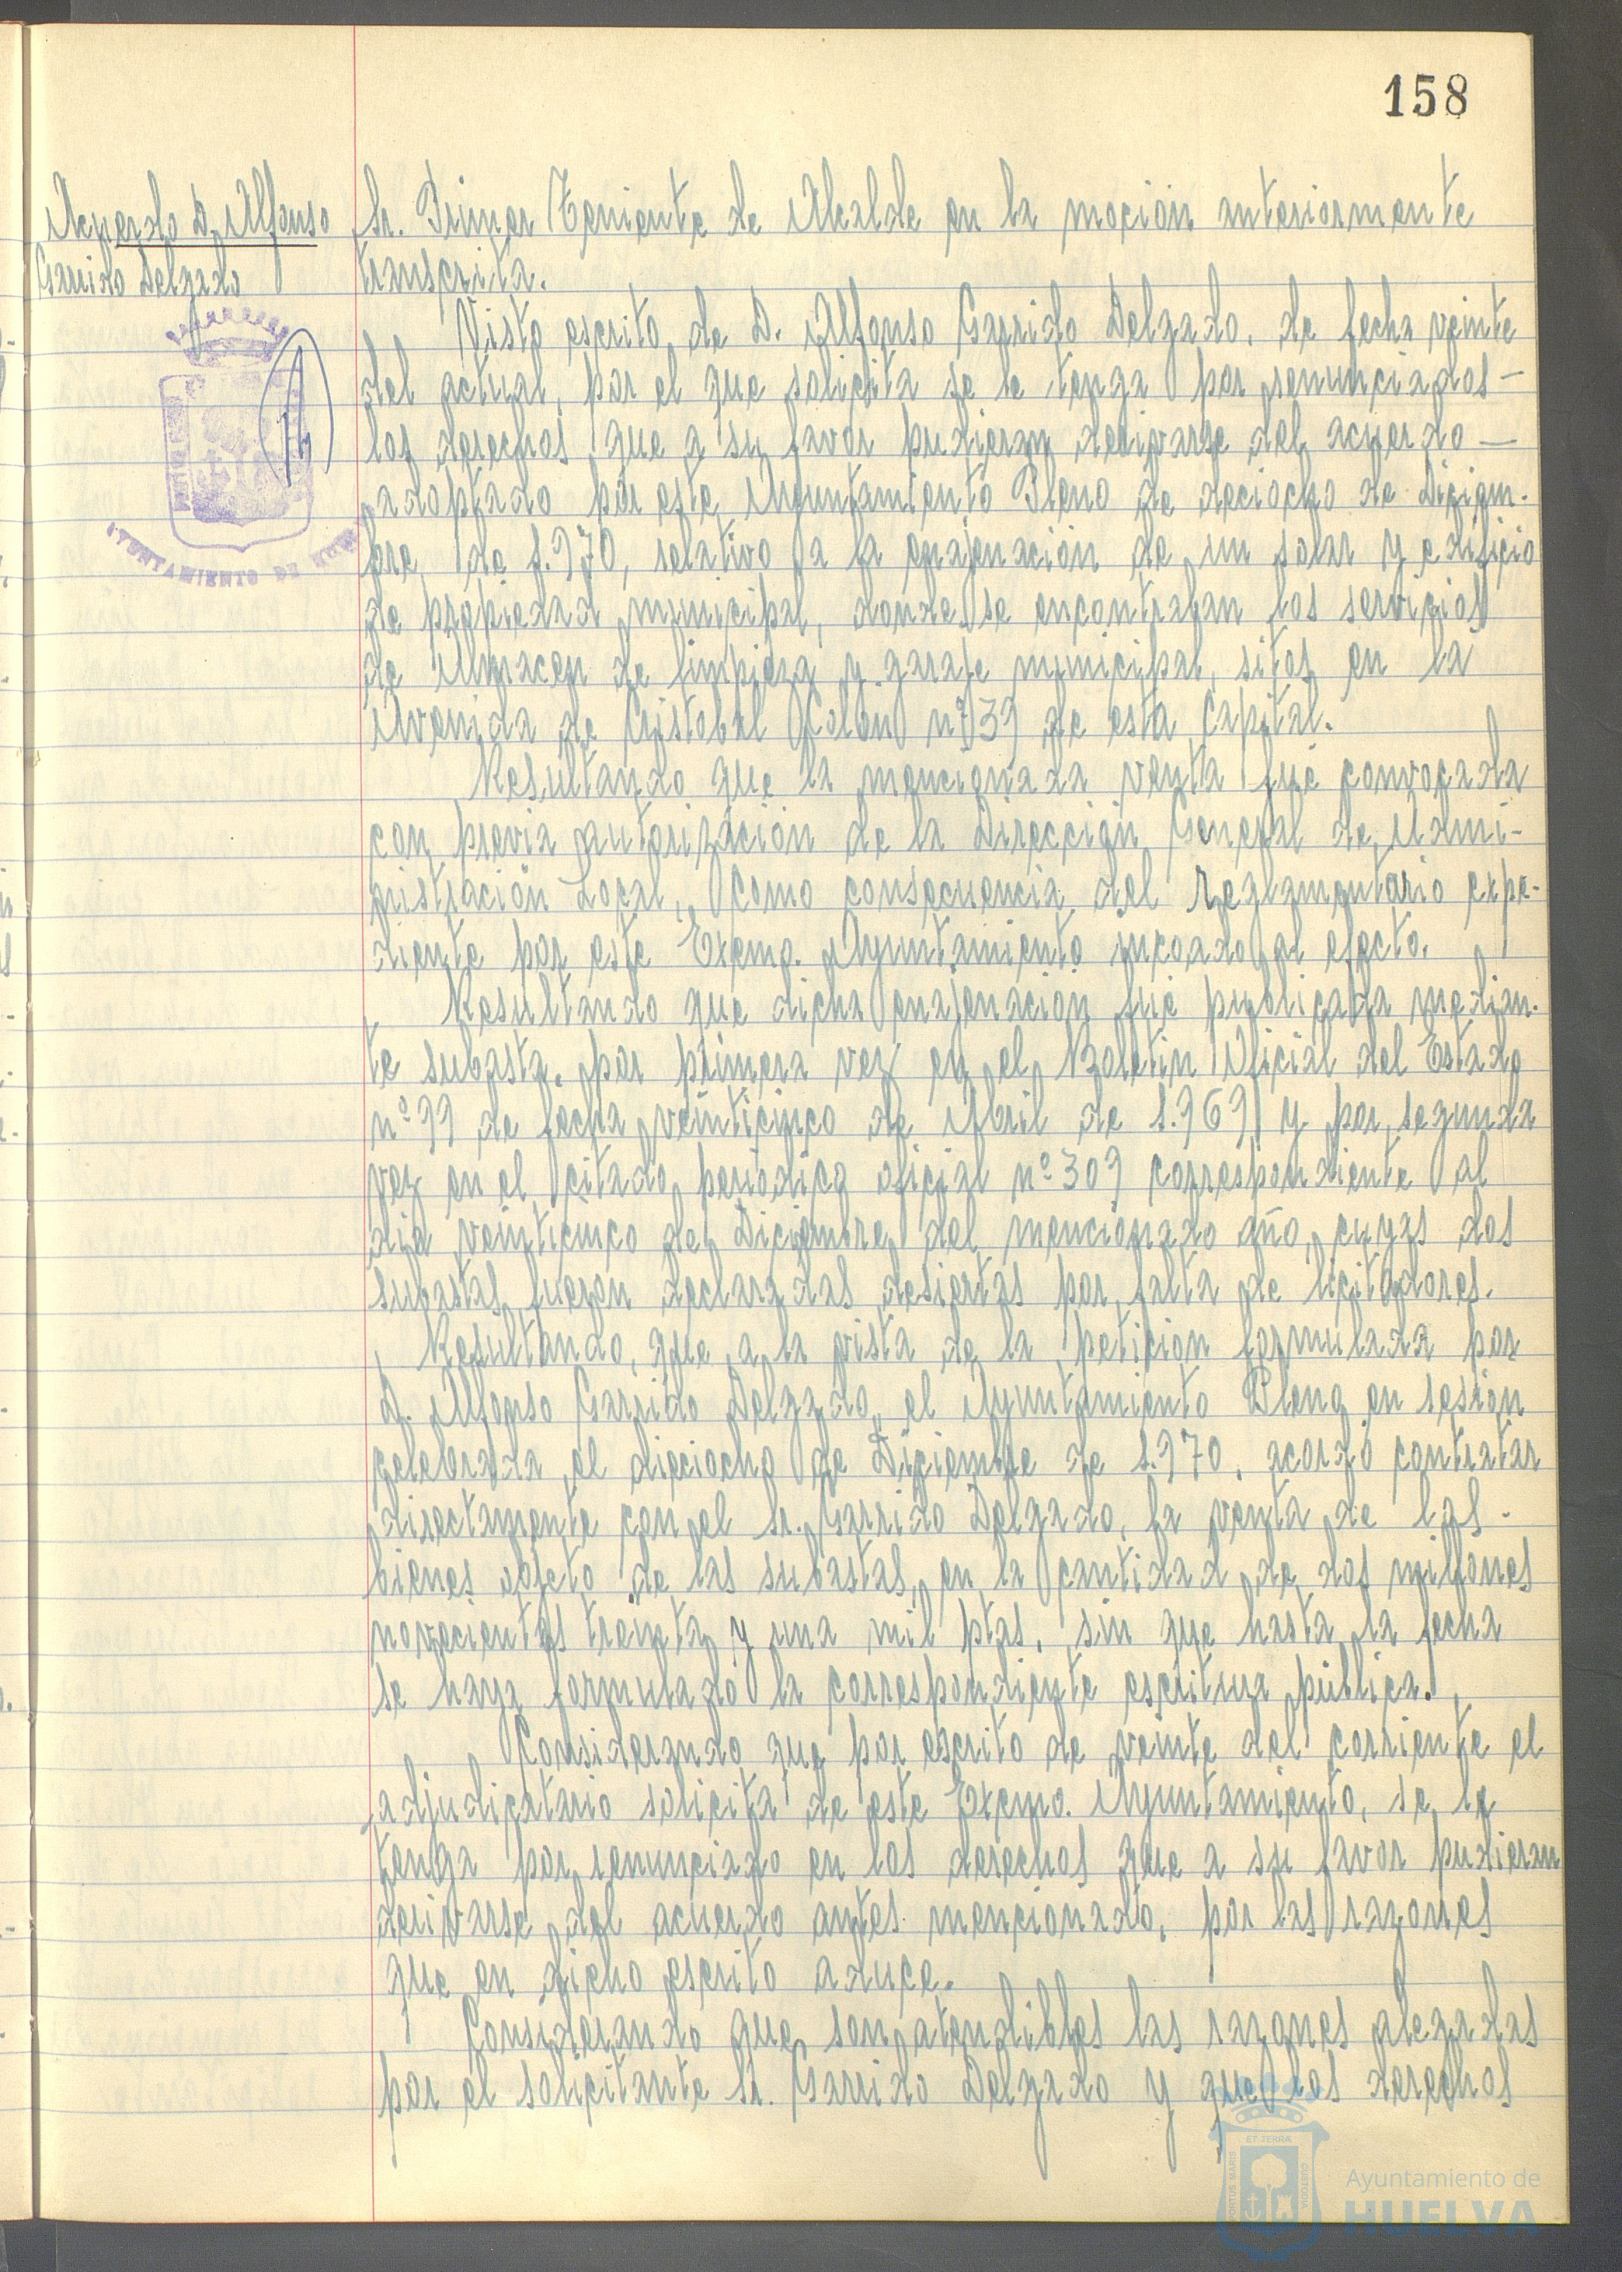 158
Acuerdo D. Alfonso
Garrido Delgado
AYUNTAMIENTO DE HUELVA
Sr. Primer Teniente de Alcalde en la moción anteriormente
transcrita.
Visto escrito de D. Alfonso Garrido Delgado, de fecha veinte
del actual, por el que solicita se le tenga por renunciados —
los derechos que a su favor pudieran derivarse del acuerdo —
adoptado por este Ayuntamiento Pleno de deciocho de Diciem-
bre de 1.970, relativo a la enajenación de un solar y edificio
de propiedad municipal, donde se encontraban los servicios
de Almacen de limpieza y garaje municipal, sitos en la
Avenida de Cristobal Colón nº 39 de esta Capital.
Resultando que la mencionada venta fué convocada
con previa autorización de la Dirección General de Admi-
nistración Local, como consecuencia del reglamentario expe-
diente por este Excmo. Ayuntamiento incoado al efecto.
Resultando que dicha enajenación fué publicada median-
te subasta, por primera vez en el Boletin Oficial del Estado
nº 99 de fecha veinticinco de Abril de 1.969 y por segunda
vez en el citado periodico oficial nº 309 correspondiente al
dia veinticinco de Diciembre del mencionado año, cuyas dos
subastas fueron declaradas desiertas por falta de licitadores.
Resultando, que a la vista de la petición formulada por
D. Alfonso Garrido Delgado, el Ayuntamiento Pleno en sesión
celebrada el dieciocho de Diciembre de 1.970, acordó contratar
directamente con el Sr. Garrido Delgado, la venta de los -
bienes objeto de las subastas, en la cantidad de dos millones
novecientas treinta y una mil ptas, sin que hasta la fecha
se haya formulado la correspondiente escritura pública.
Considerando que por escrito de veinte del corriente el
adjudicatario solicita de este Excmo. Ayuntamiento, se le
tenga por renunciado en los derechos que a su favor pudieran
derivarse del acuerdo antes mencionado, por las razones
que en dicho escrito aduce.
Considerando que son atendibles las razones alegadas
por el solicitante Sr. Garrido Delgado y que los derechos
PORTUS MARIS
ET TERRÆ
CUSTODIA
Ayuntamiento de
HUELVA